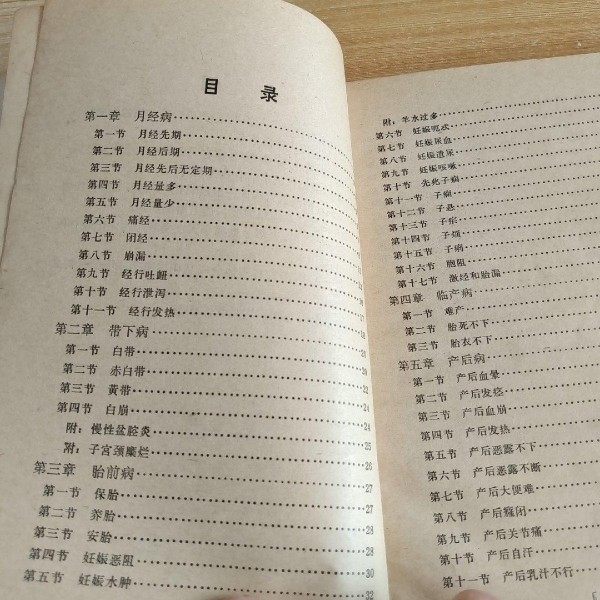 目 录
第一章 月经病
第一节 月经先期
第二节 月经后期
第三节 月经先后无定期
第四节 月经量多
第五节 月经量少
第六节 痛经
第七节 闭经
第八节 崩漏
第九节 经行吐衄
第十节 经行泄泻
第十一节 经行发热
第二章 带下病
第一节 白带
第二节 赤白带
第三节 黄带
第四节 白崩 24
附：慢性盆腔炎 25
附：子宫颈糜烂 26
第三章 胎前病 27
第一节 保胎 27
第二节 养胎 28
第三节 安胎 28
第四节 妊娠恶阻 30
第五节 妊娠水肿 32
附：羊水过多
第六节 妊娠
第七节 妊娠尿血
第八节 妊娠遗尿
第九节 妊娠咳嗽
第十节 先兆子痫
第十一节 子痫
第十二节 子悬
第十三节 子
第十四节 子烦
第十五节 子
第十六节 胞阻
第十七节 激经和胎漏
第四章 临产病
第一节 难产
第二节 胎死不下
第三节 胎衣不下
第五章 产后病
第一节 产后血晕
第二节 产后发痉
第三节 产后血崩
第四节 产后发热
第五节 产后恶露不下
第六节 产后恶露不断
第七节 产后大便难
第八节 产后癃闭
第九节 产后关节痛
第十节 产后自汗
第十一节 产后乳汁不行